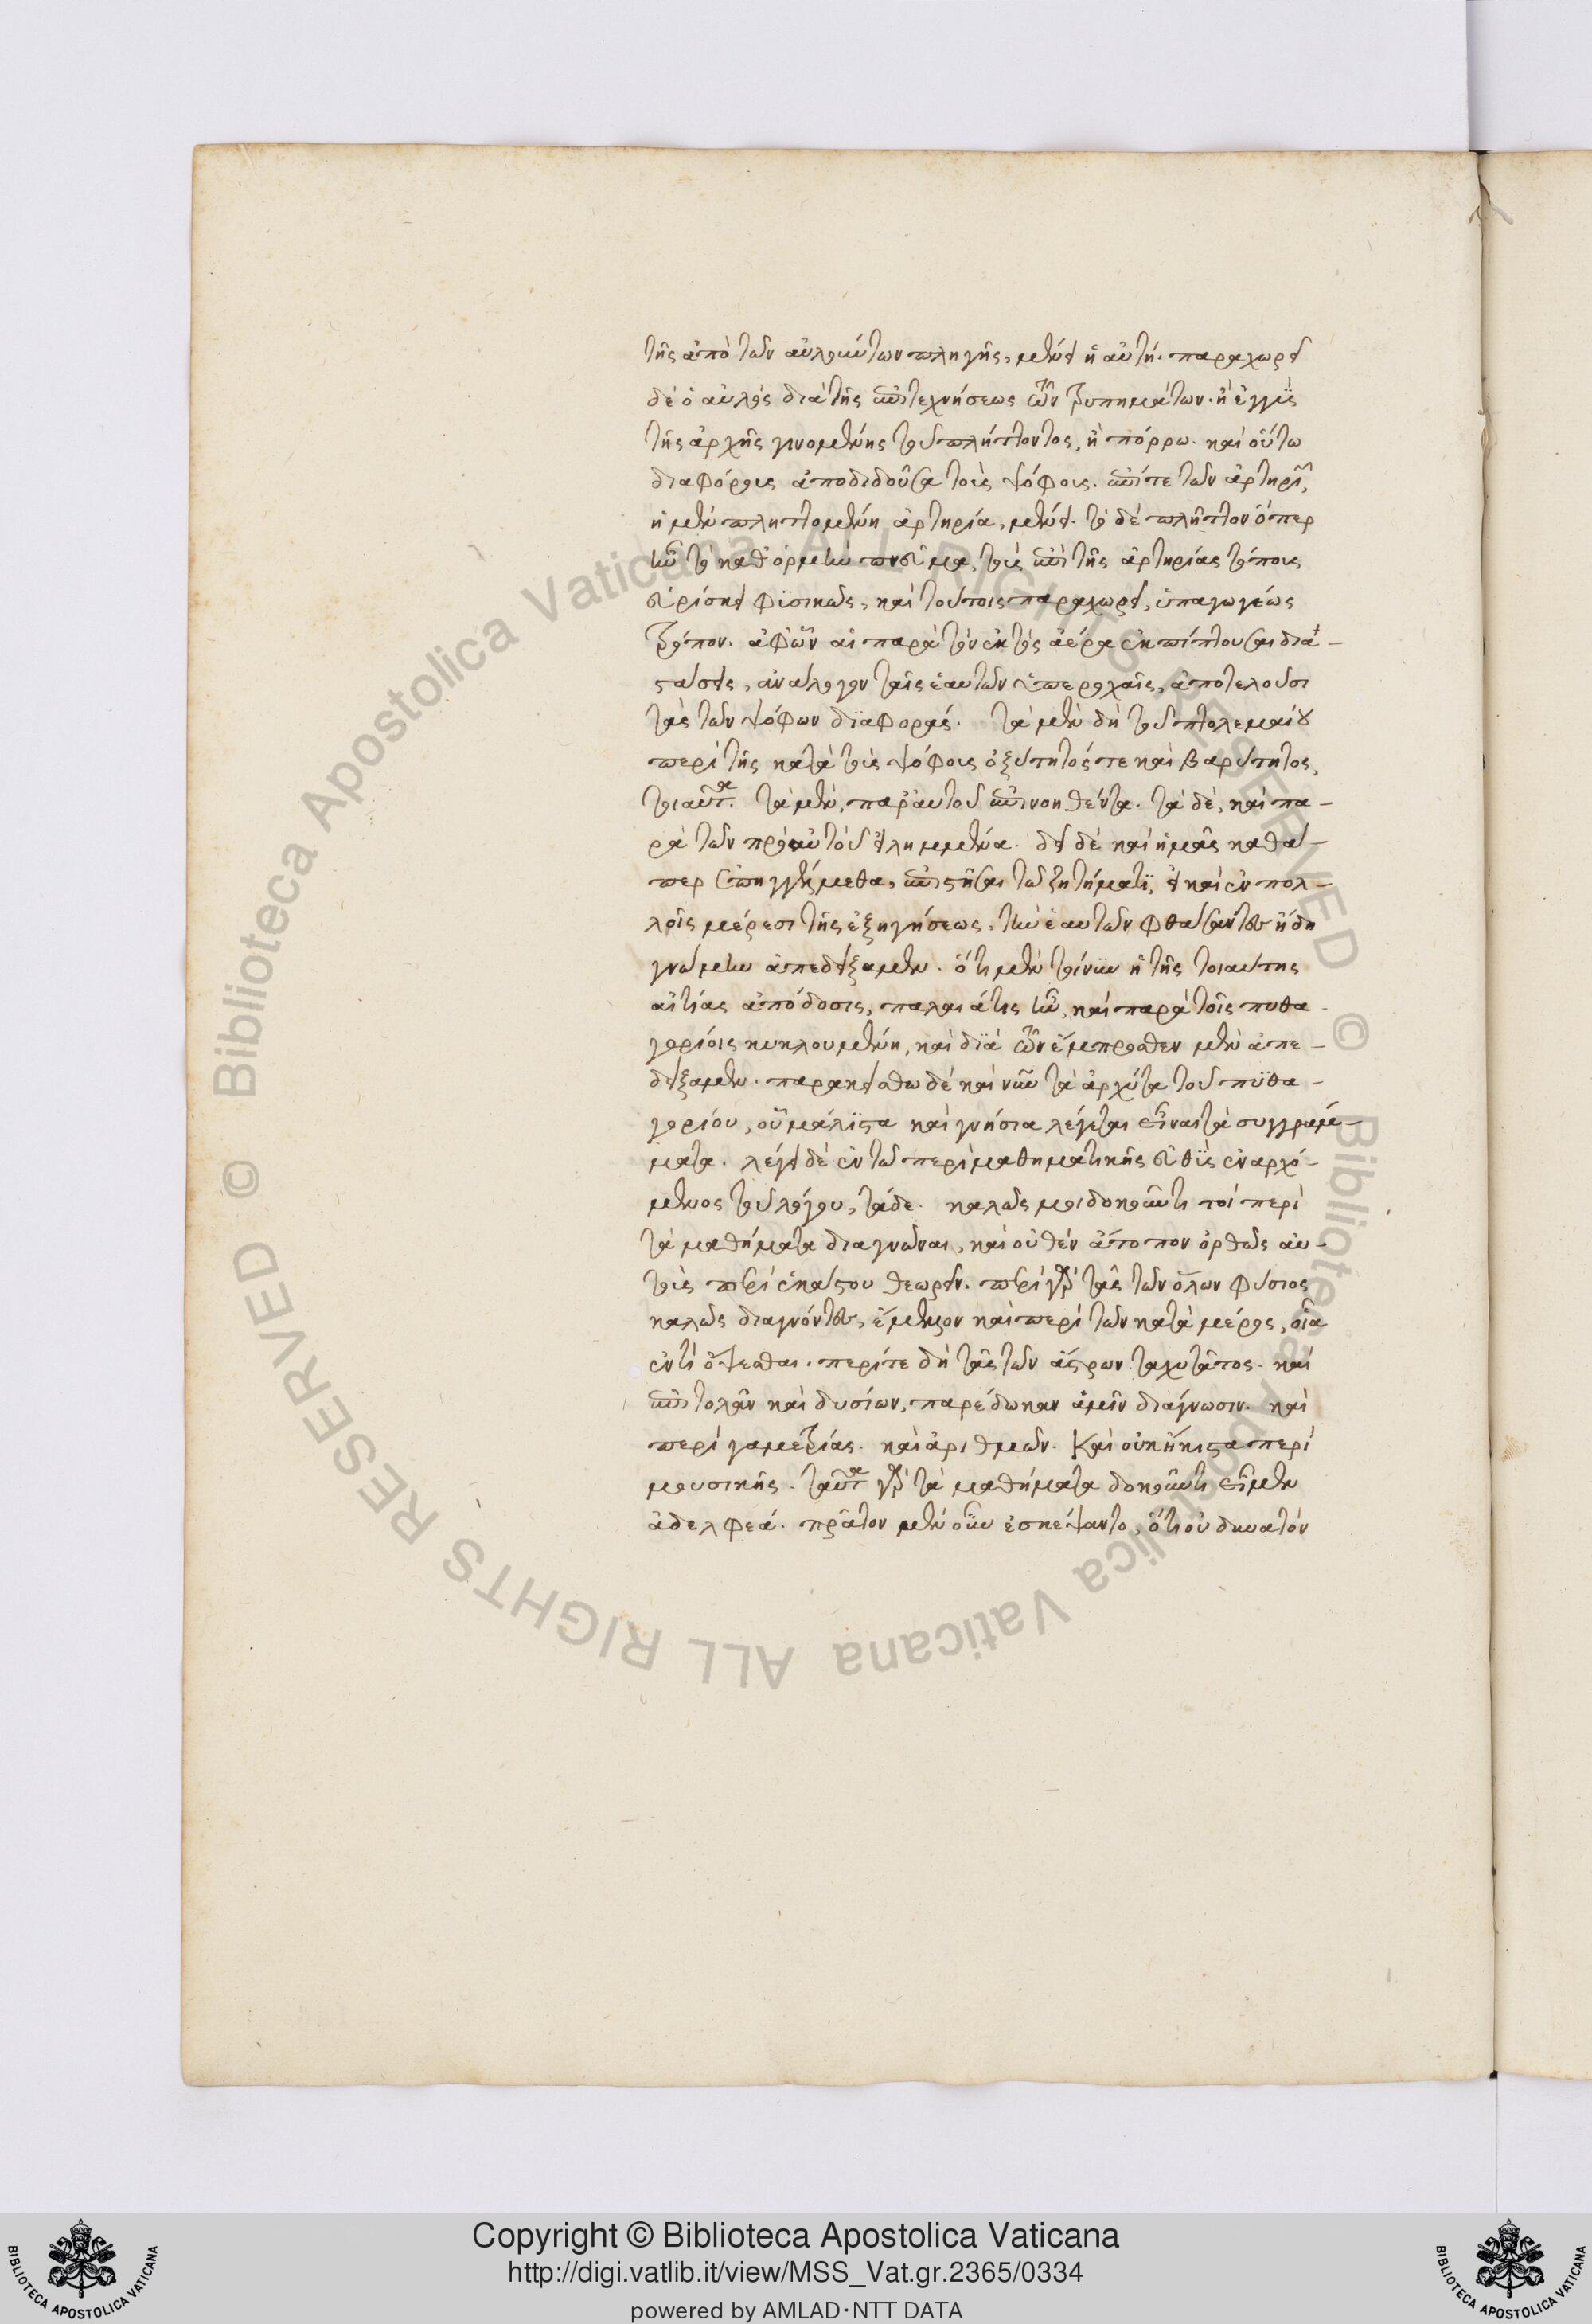 τῆς ἀπὸ τῶν αὐλούντων πληγῆς, μένει ἡ αὐτή. παραχωρεῖ
δὲ ὁ αὐλὸς διὰ τῆς ἐπιτεχνήσεως τῶν τρυπημάτων. ἢ ἐγγὺς
τῆς ἀρχῆς γινομένης τοῦ πλήττοντος, ἢ πόρρω. καὶ οὕτω
διαφόρους ἀποδιδοῦσα τοὺς ψόφους. ἐπί τε τῶν ἀρτηριῶν,
ἡ μὲν πληττομένη ἀρτηρία, μένει. τὸ δὲ πλῆττον ὅπερ
ἦν τὸ καθ' ὁρμὴν πνεῦμα, τοὺς ἐπὶ τῆς ἀρτηρίας τόπους
εὑρίσκει φϋσικῶς, καὶ τούτοις παραχωρεῖ, ὑπαγωγέως
τρόπον. ἀφ' ὧν αἱ παρὰ τὸν ἐκτὸς ἀέρα ἐκπίπτουσαι δια-
στάσεις, ἀνάλογον ταῖς ἑαυτῶν ὑπεροχαῖς, ἀποτελοῦσι
τὰς τῶν ψόφων δϊαφοράς. τὰ μὲν δὴ τοῦ πτολεμαίου
περὶ τῆς κατὰ τοὺς ψόφους ὀξύτητός τε καὶ βαρύτητος,
τοιαῦτα. τὰ μὲν, παρ' ἀυτοῦ ἐπινοηθέντα. τὰ δὲ, καὶ πα-
ρὰ τῶν πρὸ αὐτοῦ εἰλημμένα. δεῖ δὲ καὶ ἡμᾶς καθά-
περ ἐπηγγέιμεθα, ἐπιστῆσαι τῶ ζητήματϊ, εἰ καὶ ἐν πολ-
λοῖς μέρεσι τῆς ἐξηγήσεως, τὴν ἑαυτῶν φθάσαντες ἤδη
γνώμην ἀπεδείξαμεν. ὅτι μὲν τοίνϋν ἡ τῆς τοιαύτης
αἰτίας ἀπόδοσις, παλαι άτις ἦν, καὶ παρὰ τοῖς πυθα-
γορείοις κυκλουμένη, καὶ δϊὰ τῶν ἔμπροσθεν μὲν ἀπε-
δείξαμεν. παρακείσθω δὲ καὶ νῦν τὰ ἀρχύτα τοῦ πϋθα-
γορείου, οὗ μάλϊστα καὶ γνήσια λέγεται εἶναι τὰ συγγράμ-
ματα. λέγει δὲ ἐν τῶ περὶ μαθηματικῆς εὐθϋς ἐναρχό-
μενος τοῦ λόγου, τάδε. καλῶς μοι δοκοῦντι τοὶ περὶ
τὰ μαθήματα διαγνῶναι, καὶ οὐθὲν ἄτοπον ὀρθῶς αὐ-
τοὺς περὶ ἑκάστου θεωρεῖν. περὶ γὰρ τᾶς τῶν ὅλων φύσιος
καλῶς διαγνόντες, ἔμελλον καὶ περὶ τῶν κατὰ μέρος, οἷα
ἐντὶ ὄψεσθαι. περί τε δὴ τᾶς τῶν ἄστρων ταχυτᾶτος. καὶ
ἐπιτολᾶν καὶ δυσίων, παρέδωκαν ἁμῖν διάγνωσιν. καὶ
περὶ γαμετρίας. καὶ ἀριθμῶν. καὶ οὐκ ἥκιστα περὶ
μουσικῆς. ταῦτα γὰρ τὰ μαθήματα δοκοῦντι εἶμεν
ἀδελφεά. πρᾶτον μὲν οὖν ἐσκέψαντο, ὅτι οὐ δυνατὸν
Copyright © Biblioteca Apostolica Vaticana
http://digi.vatlib.it/view/MSS_Vat.gr.2365/0334
powered by AMLAD·NTT DATA